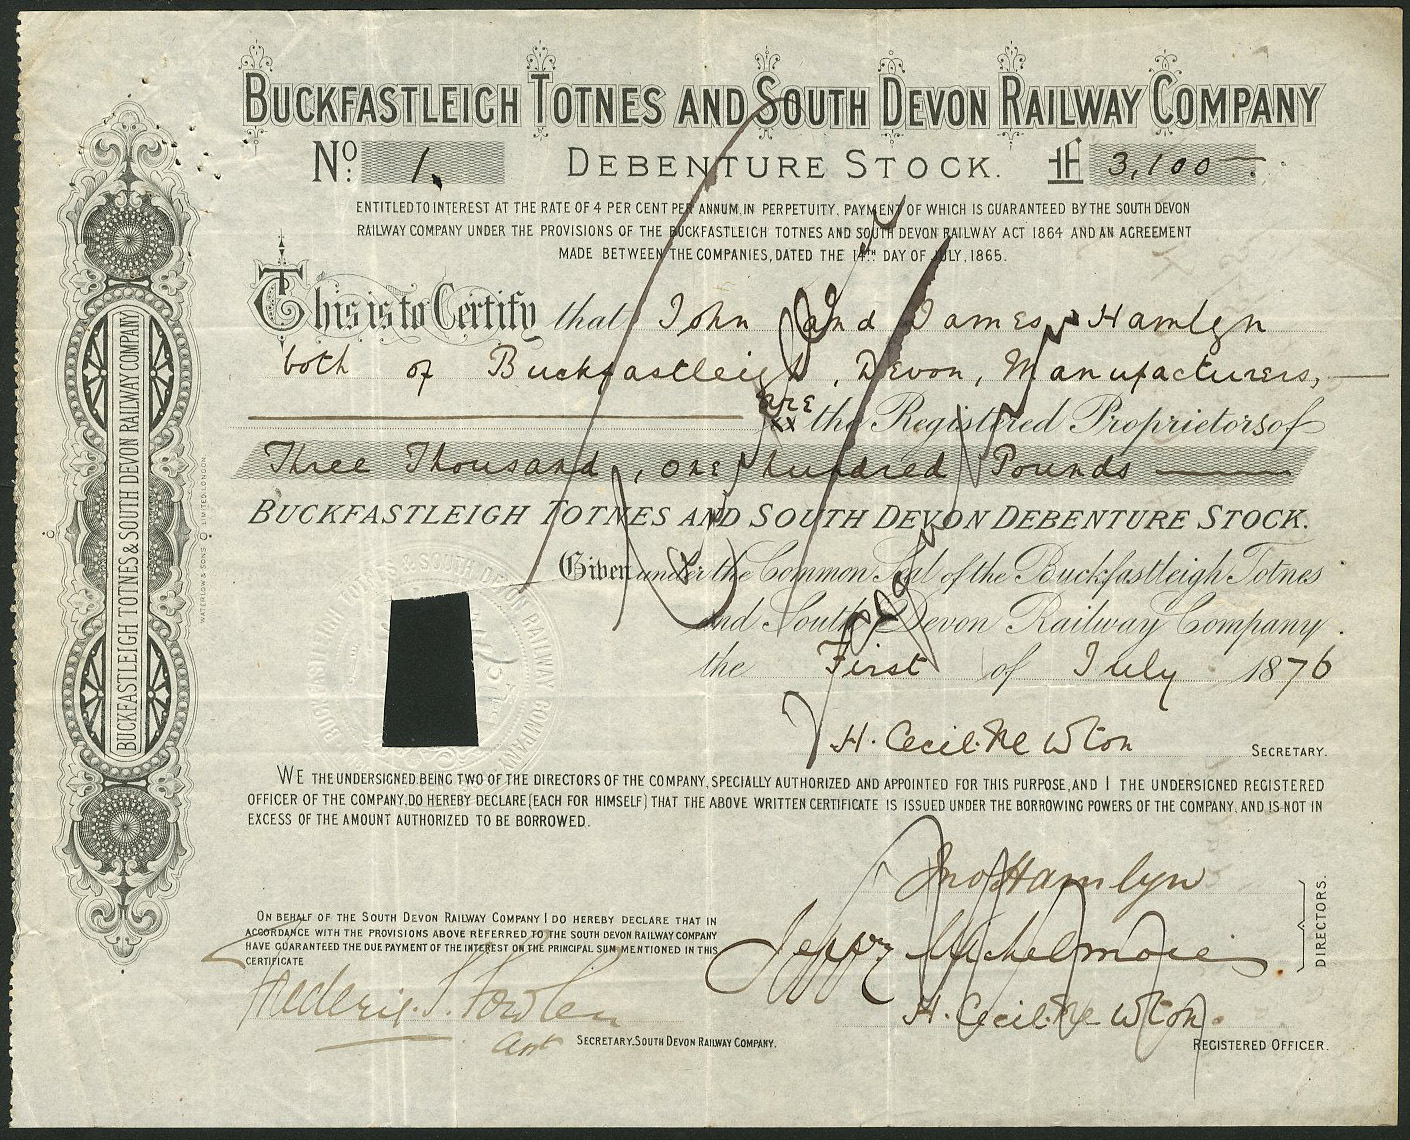 BUCKFASTLEIGH TOTNES AND SOUTH DEVON RAILWAY COMPANY
No: 1. DEBENTURE STOCK. £ 3,100 —
ENTITLED TO INTEREST AT THE RATE OF 4 PER CENT PER ANNUM, IN PERPETUITY, PAYMENT OF WHICH IS GUARANTEED BY THE SOUTH DEVON
RAILWAY COMPANY UNDER THE PROVISIONS OF THE BUCKFASTLEIGH TOTNES AND SOUTH DEVON RAILWAY ACT 1864 AND AN AGREEMENT
MADE BETWEEN THE COMPANIES, DATED THE 14TH DAY OF JULY, 1865.
This is to Certify that John and James Hamlyn
both of Buckfastleigh, Devon, Manufacturers, —
are the Registered Proprietors of
Three Thousand, one hundred Pounds —
BUCKFASTLEIGH TOTNES AND SOUTH DEVON DEBENTURE STOCK.
Given under the Common Seal of the Buckfastleigh Totnes
and South Devon Railway Company
the First of July 1876
H. Cecil Newton
SECRETARY.
WE THE UNDERSIGNED, BEING TWO OF THE DIRECTORS OF THE COMPANY, SPECIALLY AUTHORIZED AND APPOINTED FOR THIS PURPOSE, AND I THE UNDERSIGNED REGISTERED
OFFICER OF THE COMPANY, DO HEREBY DECLARE (EACH FOR HIMSELF) THAT THE ABOVE WRITTEN CERTIFICATE IS ISSUED UNDER THE BORROWING POWERS OF THE COMPANY, AND IS NOT IN
EXCESS OF THE AMOUNT AUTHORIZED TO BE BORROWED.
Jno Hamlyn
Jeffry Michelmore
DIRECTORS.
H. Cecil Newton.
REGISTERED OFFICER.
ON BEHALF OF THE SOUTH DEVON RAILWAY COMPANY I DO HEREBY DECLARE THAT IN
ACCORDANCE WITH THE PROVISIONS ABOVE REFERRED TO THE SOUTH DEVON RAILWAY COMPANY
HAVE GUARANTEED THE DUE PAYMENT OF THE INTEREST ON THE PRINCIPAL SUM MENTIONED IN THIS
CERTIFICATE
SECRETARY, SOUTH DEVON RAILWAY COMPANY.
BUCKFASTLEIGH TOTNES & SOUTH DEVON RAILWAY COMPANY
WATERLOW & SONS LIMITED, LONDON.
BUCKFASTLEIGH TOTNES & SOUTH DEVON RAILWAY COMPANY